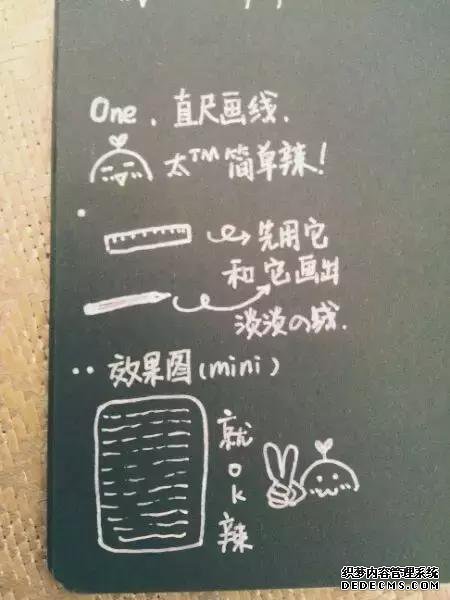 One、直尺画线.
太TM简单辣!
先用它
和它画出
淡淡の线.
效果图(mini)
就ok辣
织梦内容管理系统
DEDECMS.COM